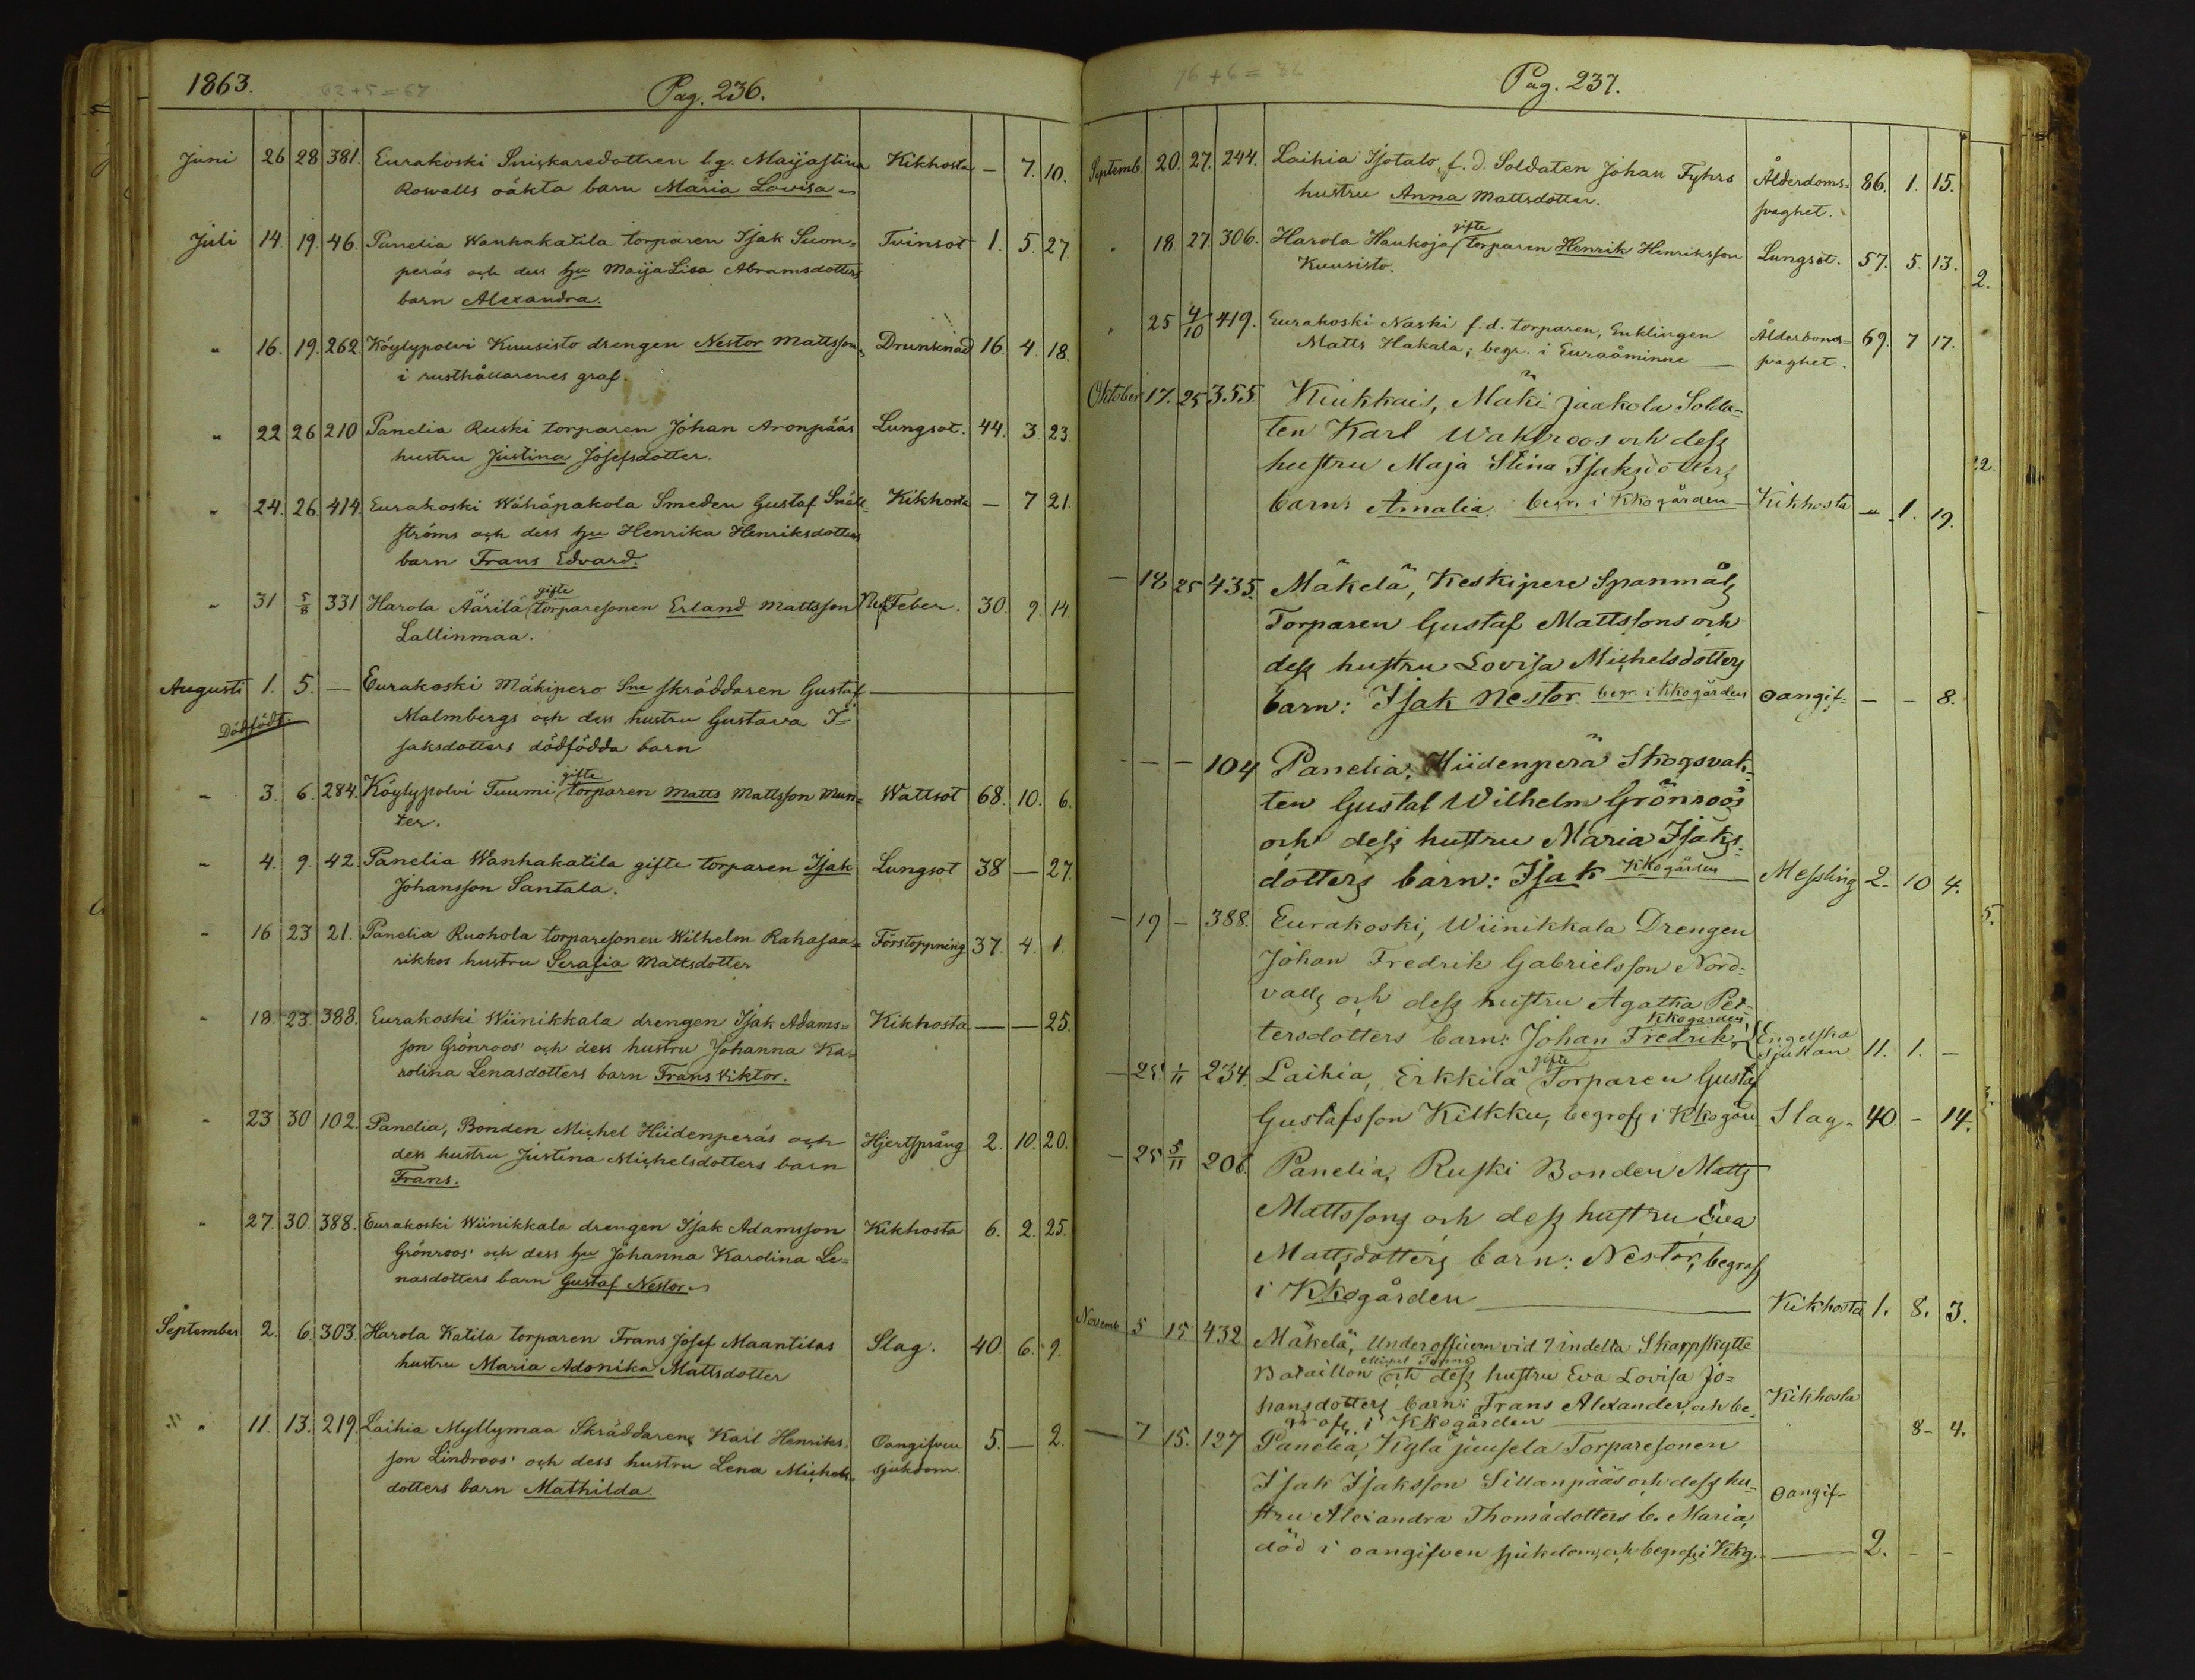 1863. 62+5=67 Pag. 236.
Juni 26 28 381. Eurakoski Snickaredottren lg. Maijastina Kikhosta — 7. 10.
Roswalls oäkta barn Maria Lovisa
Juli 14. 19. 46. Panelia Wanhakatila torparen Isak Suon= Tvinsot 1. 5. 27.
peräs och dess hu Maija Lisa Abramsdotters
barn Alexandra.
" 16. 19. 262. Köylypolvi Kuusisto drengen Nestor Mattsson, Drunknad 16. 4. 18.
i rusthållarenes graf.
" 22 26 210 Panelia Ruski torparen Johan Aronpääs Lungsot. 44. 3. 23.
hustru Justina Josefsdotter.
" 24. 26. 414. Eurakoski Wähäpakola Smeden Gustaf Snäll= Kikhosta — 7 21.
ströms och dess hu Henrika Henriksdotters
barn Frans Edvard.
" 31 5/8 331 Harola Äärilä gifte torparesonen Erland Mattsson Nerffeber. 30. 9. 14.
Lallinmaa.
Augusti 1. 5. — Eurakoski Mäkipero Sne skräddaren Gustaf
Dödfödt. Malmbergs och dess hustru Gustava I=
saksdotters dödfödda barn
" 3. 6. 284. Köylypolvi Tuumi gifte torparen Matts Mattsson Mun= Wattsot 68. 10. 6.
ter.
" 4. 9. 42. Panelia Wanhakatila gifte torparen Isak Lungsot 38 — 27.
Johansson Santala.
" 16 23 21. Panelia Ruohola torparesonen Wilhelm Rahasaa= Förstoppning 37. 4. 1.
rikkos hustru Serafia Mattsdotter
" 18. 23. 388. Eurakoski Wiinikkala drengen Isak Adams= Kikhosta — — 25.
son Grönroos' och dess hustru Johanna Ka=
rolina Lenasdotters barn Frans Viktor.
" 23 30 102. Panelia, Bonden Michel Hiidenperäs och Hjertsprång 2. 10. 20.
dess hustru Justina Michelsdotters barn
Frans.
" 27. 30. 388. Eurakoski Wiinikkala drengen Isak Adamsson Kikhosta 6. 2. 25.
Grönroos' och dess hu Johanna Karolina Le=
nasdotters barn Gustaf Nestor.
September 2. 6. 303. Harola Katila torparen Frans Josef Maantilas Slag. 40. 6. 9.
hustru Maria Adonika Mattsdotter
" 11. 13. 219. Laihia Myllymaa Skräddarens Karl Henriks= Oangifven 5. — 2.
son Lindroos' och dess hustru Lena Michels= sjukdom.
dotters barn Mathilda.
76+6=86 Pag. 237.
Septemb. 20. 27. 244. Laihia Isotalo, f.d. Soldaten Johan Fyhrs Ålderdoms= 86. 1. 15.
hustru Anna Mattsdotter. svaghet.
" 18 27. 306. Harola Haukoja gifte torparen Henrik Henriksson Lungsot. 57. 5. 13.
Kuusisto. 2.
" 25 4/10 419. Eurakoski Naski f.d. torparen, Enklingen Ålderdoms= 69. 7 17.
Matts Hakala; begr. i Euraåminne — svaghet.
Oktober 17. 25 355. Kiukkais, Mäki-Jaakola Solda=
ten Karl Wahlroos och dess
hustru Maja Stina Isaksdotters
barn: Amalia. begr. i Kkogården Kikhosta — 1. 19.
— 18 25 435. Mäkelä, Keskipere Spanmåls
Torparen Gustaf Mattssons och
dess hustru Lovisa Michelsdotters
barn: Isak Nestor. begr. i Kkogården oangif= — — 8.
— — 104 Panelia, Hiidenperä Skogsvak=
ten Gustaf Wilhelm Grönroos
och dess hustru Maria Isaks=
dotters barn: Isak Kkogården Messling 2. 10 4.
— 19 — 388. Eurakoski, Wiinikkala Drengen
Johan Fredrik Gabrielsson Nord=
valls och dess hustru Agatha Pet=
tersdotters barn: Johan Fredrik Kkogården, Engelska sjukan 11. 1. —
— 25 1/11 234. Laihia, Erkkilä gifte Torparen Gustaf
Gustafsson Kilkku, begrafs i Kkogår Slag. 40 — 14.
— 25 5/11 206. Panelia, Ruski Bonden Matts
Mattssons och dess hustru Eva
Mattsdotters barn: Nestor, begrafs
i Kkogården — Kikhosta 1. 8. 3.
Novemb 5 15 432 Mäkelä, Underofficern vid 7 indelta Skarpskytte
Bataillon och dess hustru Eva Lovisa Jo=
hansdotters barn: Frans Alexander, och be= Kikhosta
grafs i Kkogården 8- 4.
— 7 15. 127 Panelia, Kylä Juusela Torparesonen
Isak Isaksson Sillanpääs och dess hu=
stru Alexandra Thomädotters b. Maria, oangif-
död i oangifven sjukdom, och begrafs i Kkg. — 2. - -